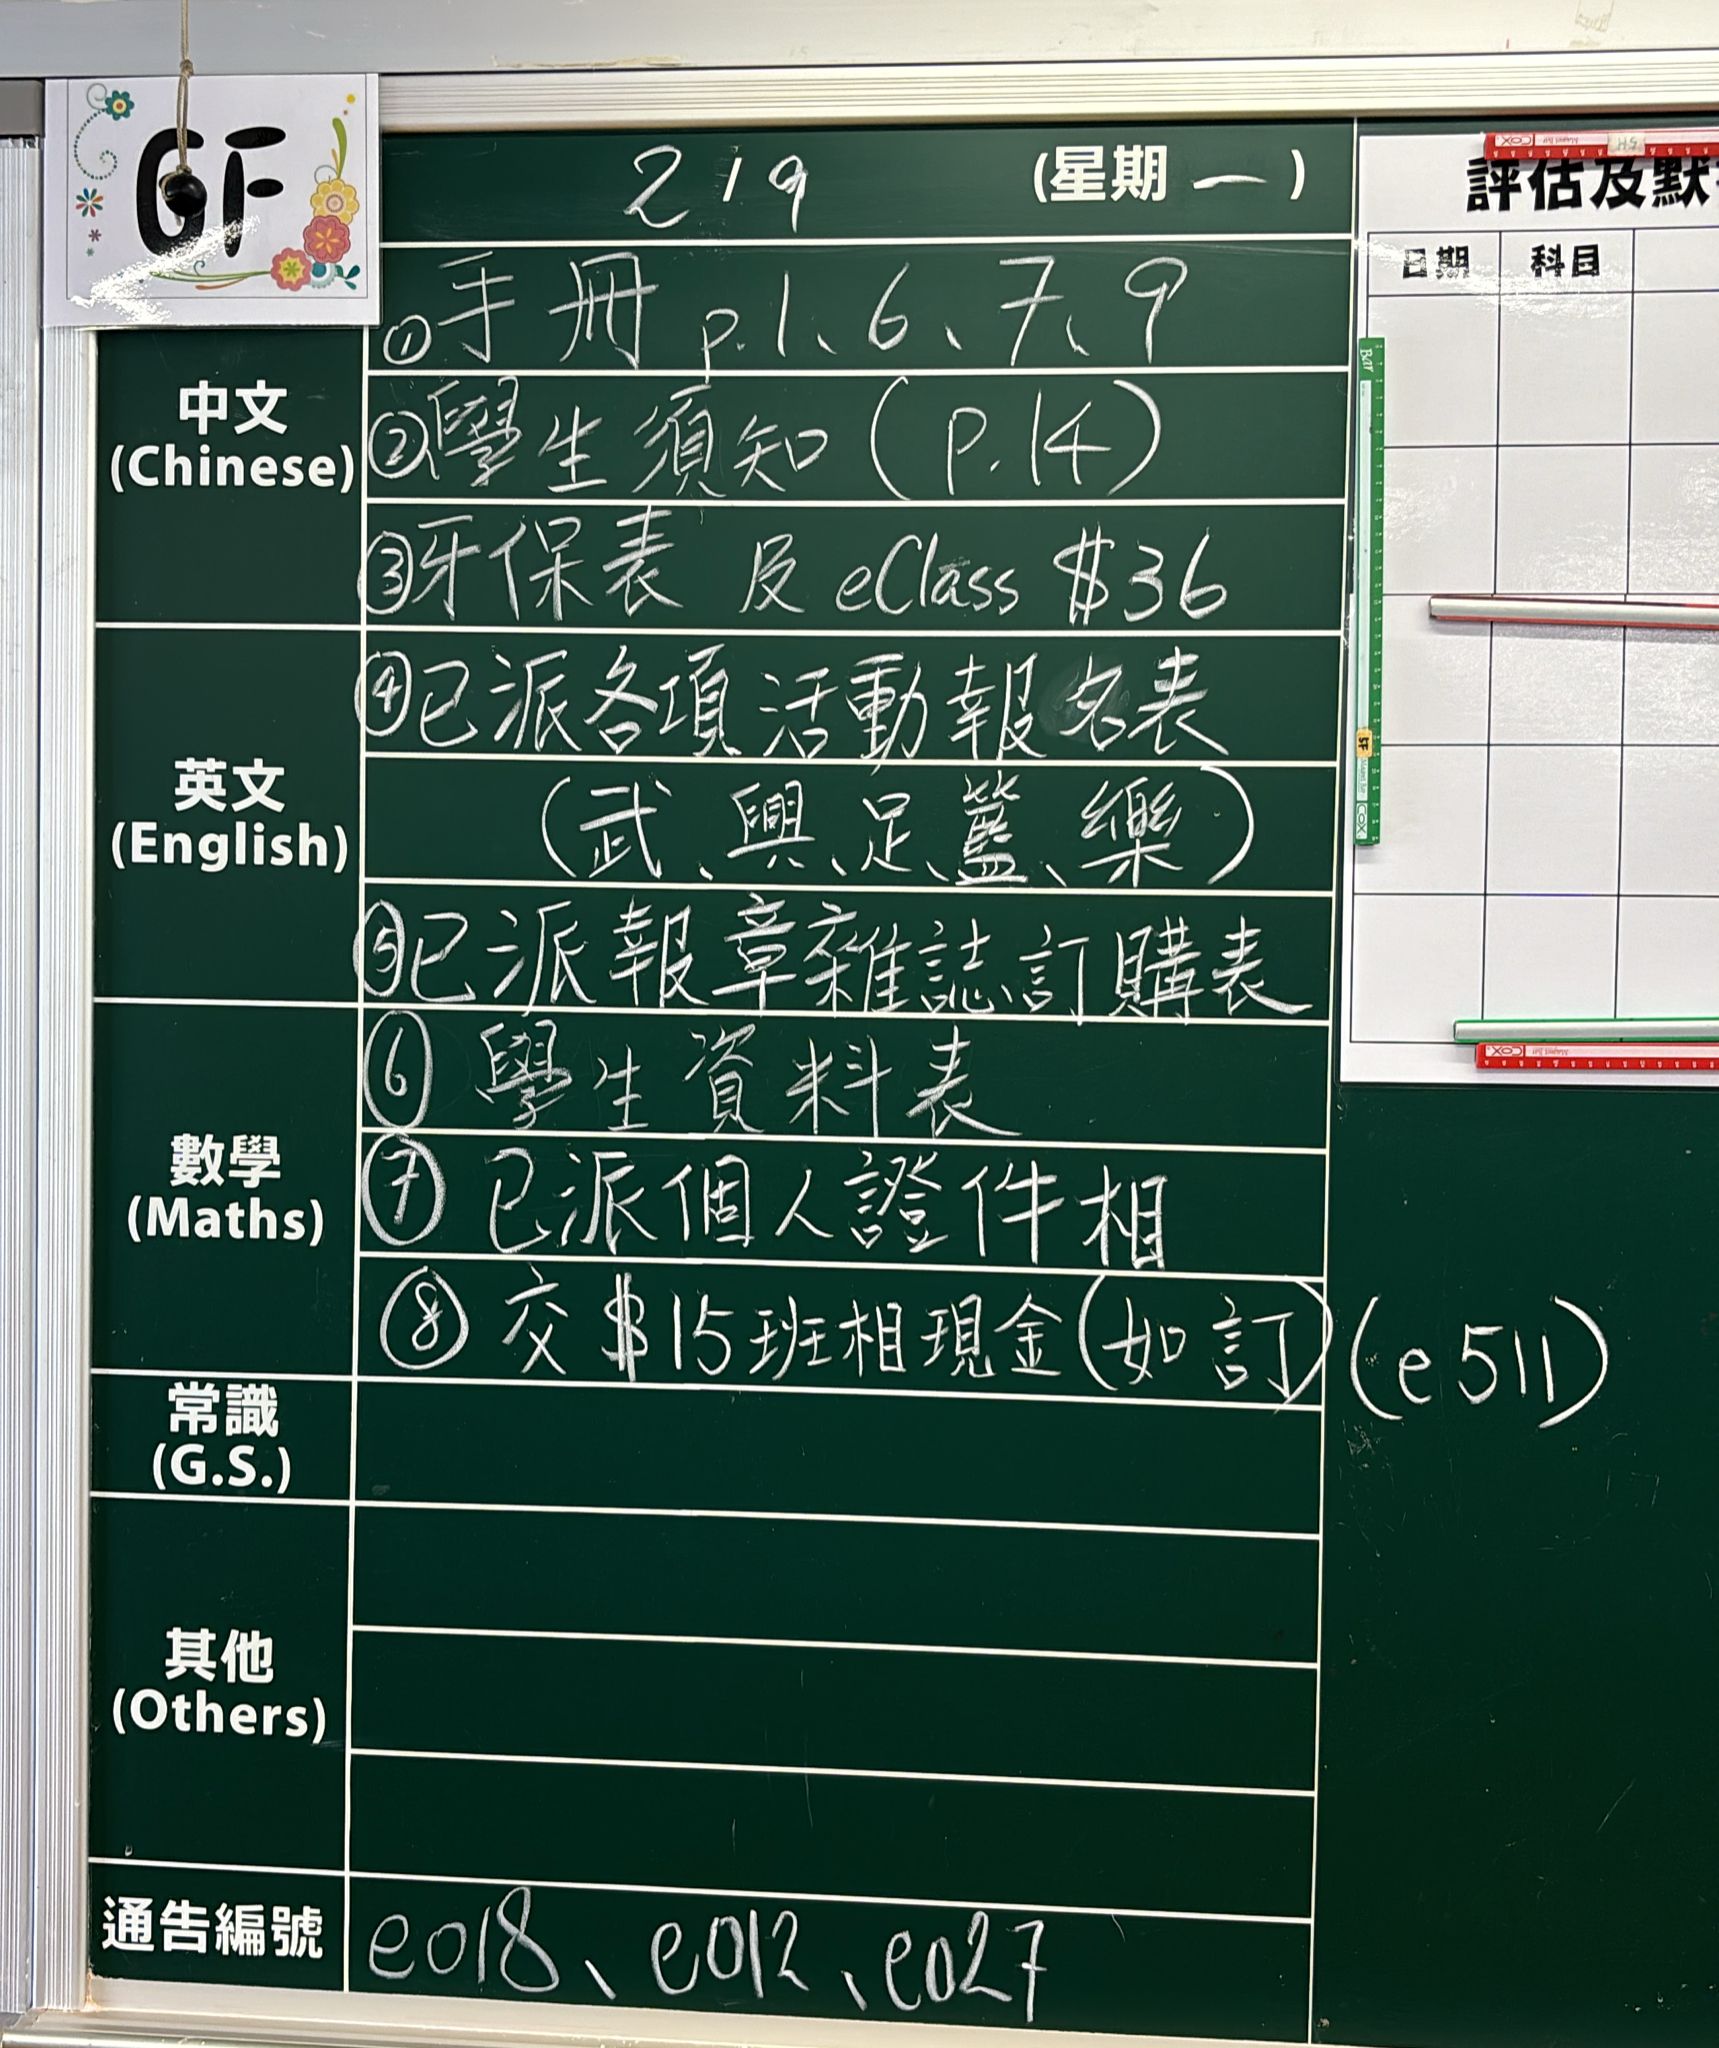 6F
2/9 (星期一)
中文
(Chinese)
①手冊 p.1、6、7、9
②學生須知 (p.14)
③牙保表 及 eClass $36
英文
(English)
④已派各項活動報名表
(武、興、足、籃、樂)
⑤已派報章雜誌訂購表
數學
(Maths)
⑥ 學生資料表
⑦ 已派個人證件相
⑧ 交 $15班相現金(如訂) (e511)
常識
(G.S.)
其他
(Others)
通告編號
e018、e012、e027
評估及默
日期 科目
COX Magnet Bar 5H
BAR
5F
COX
COX Magnet Bar